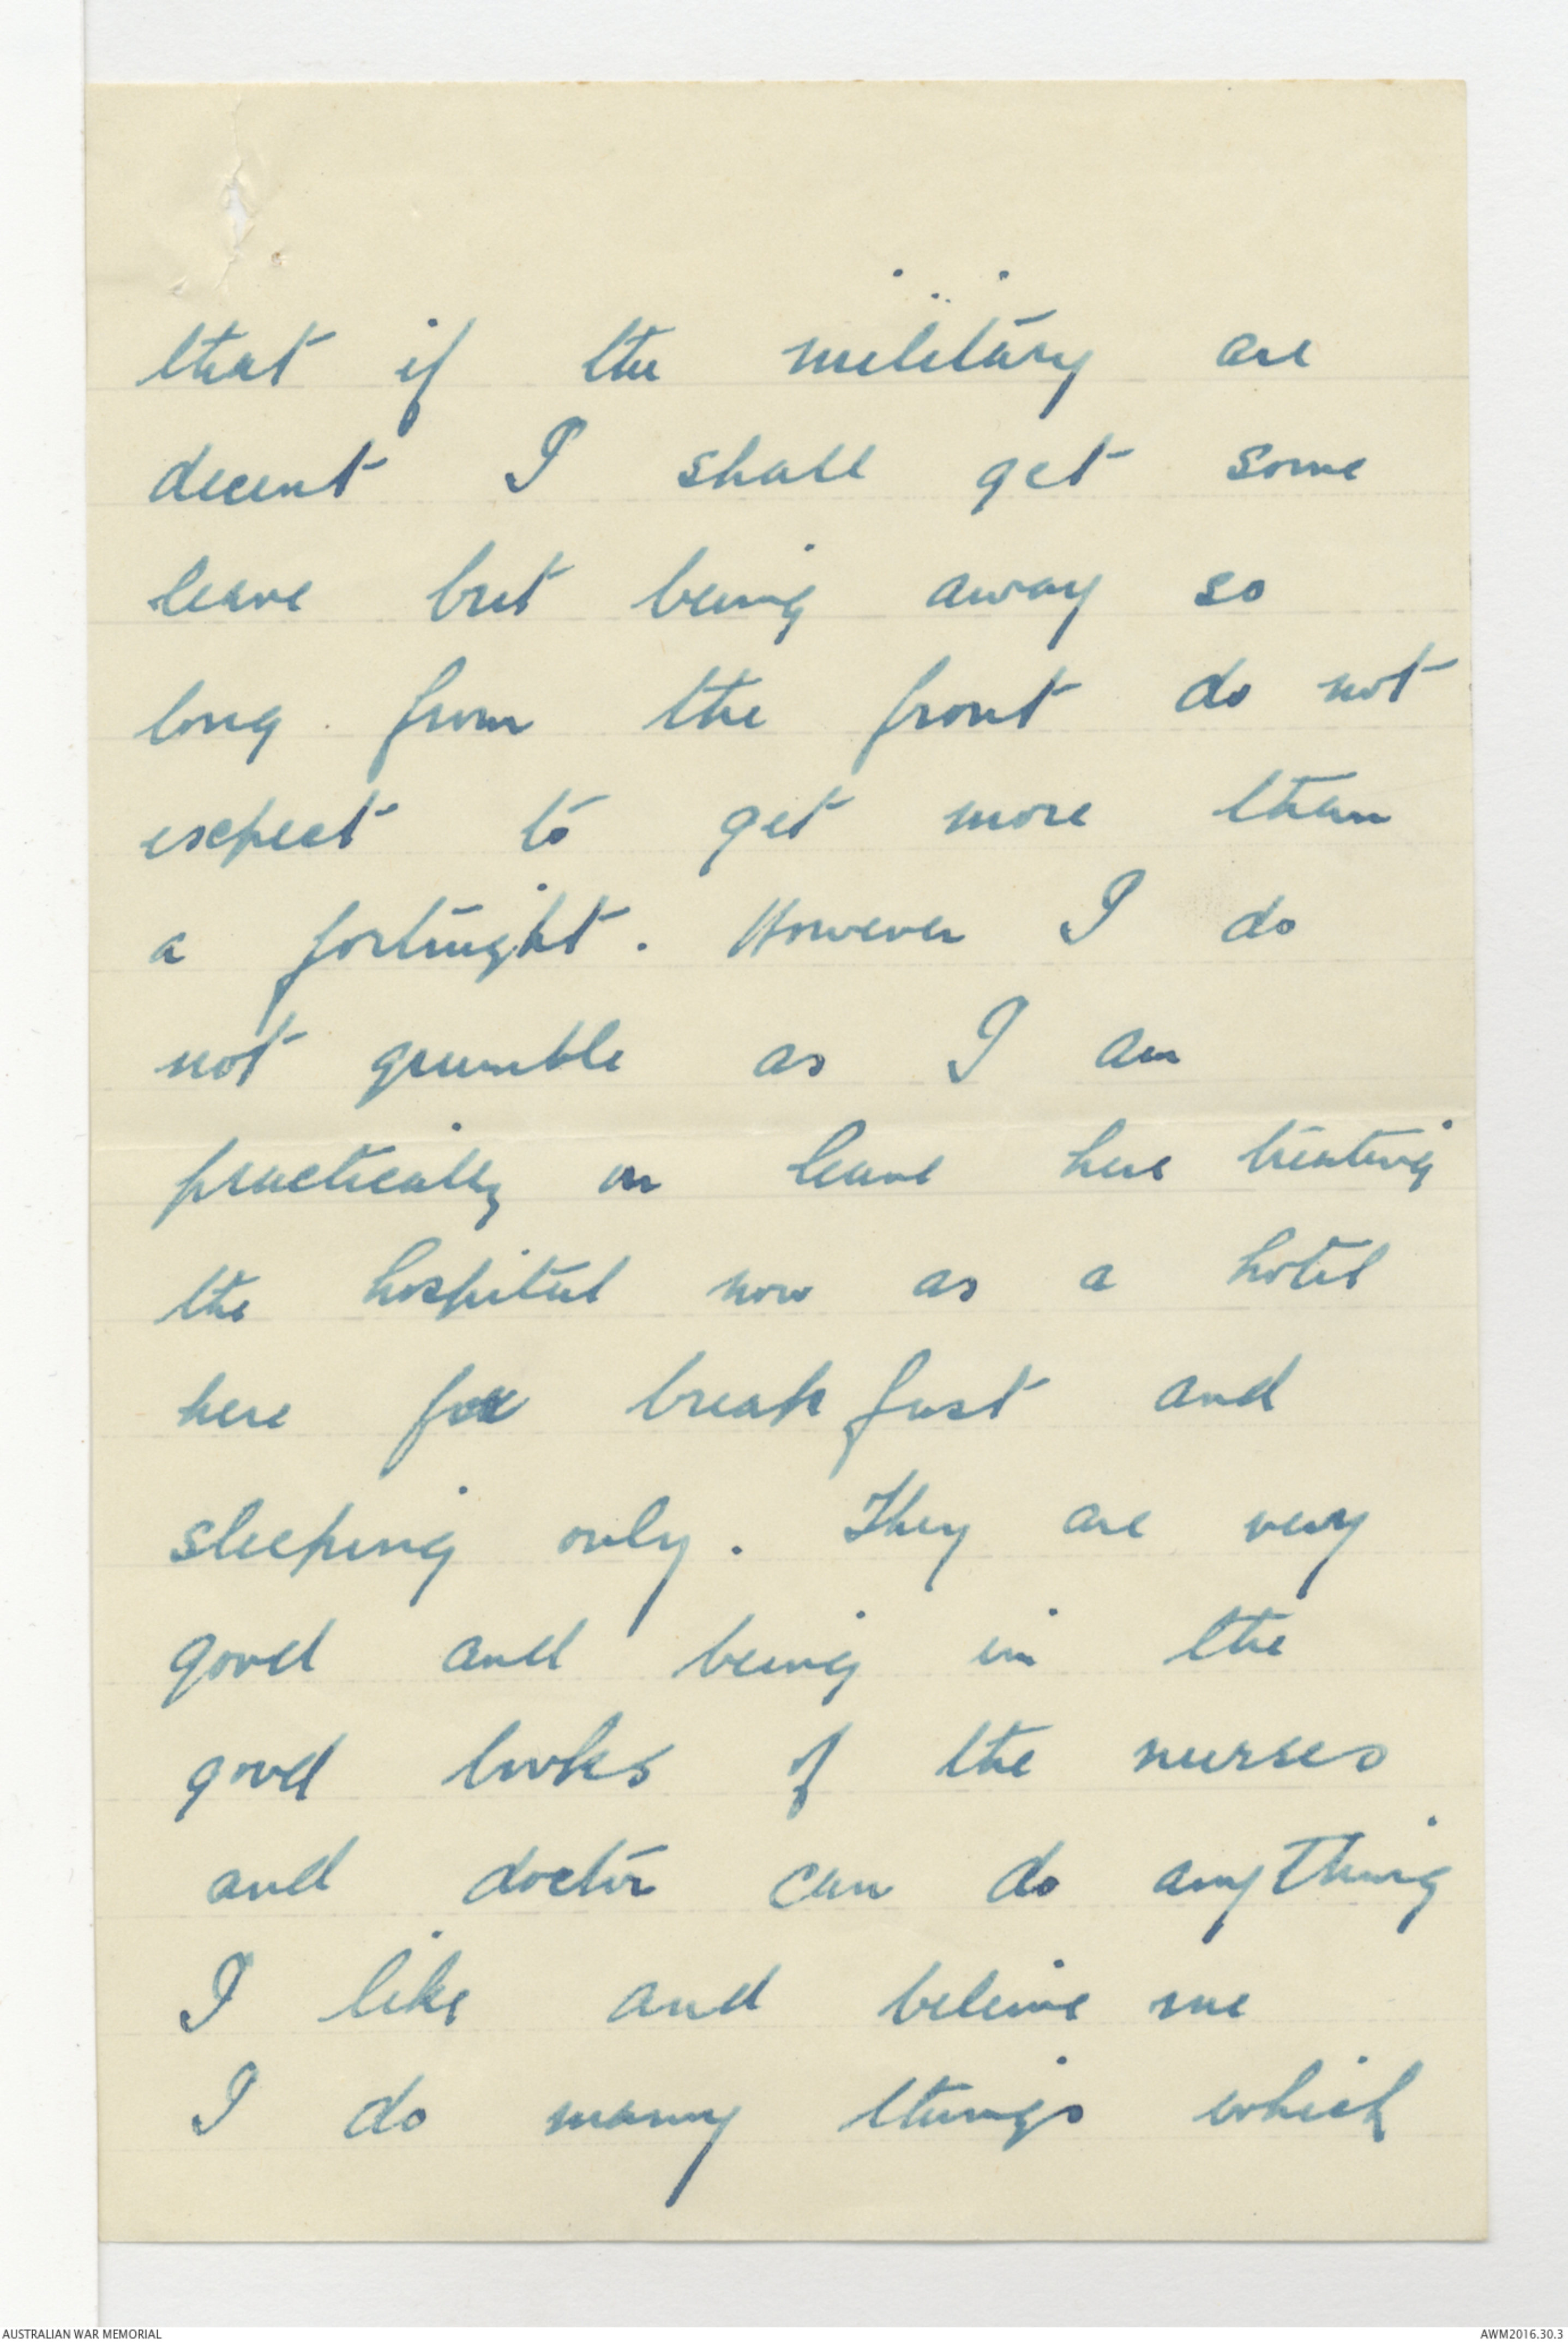 that if the military are
decent I shall get some
leave but being away so
long from the front do not
expect to get more than
a fortnight. However I do
not grumble as I am
practically on leave here treating
the hospital now as a hotel
here for breakfast and
sleeping only. They are very
good and being in the
good books of the nurses
and doctor can do anything
I like and beleive me
I do many things which
AUSTRALIAN WAR MEMORIAL
AWM2016.30.3